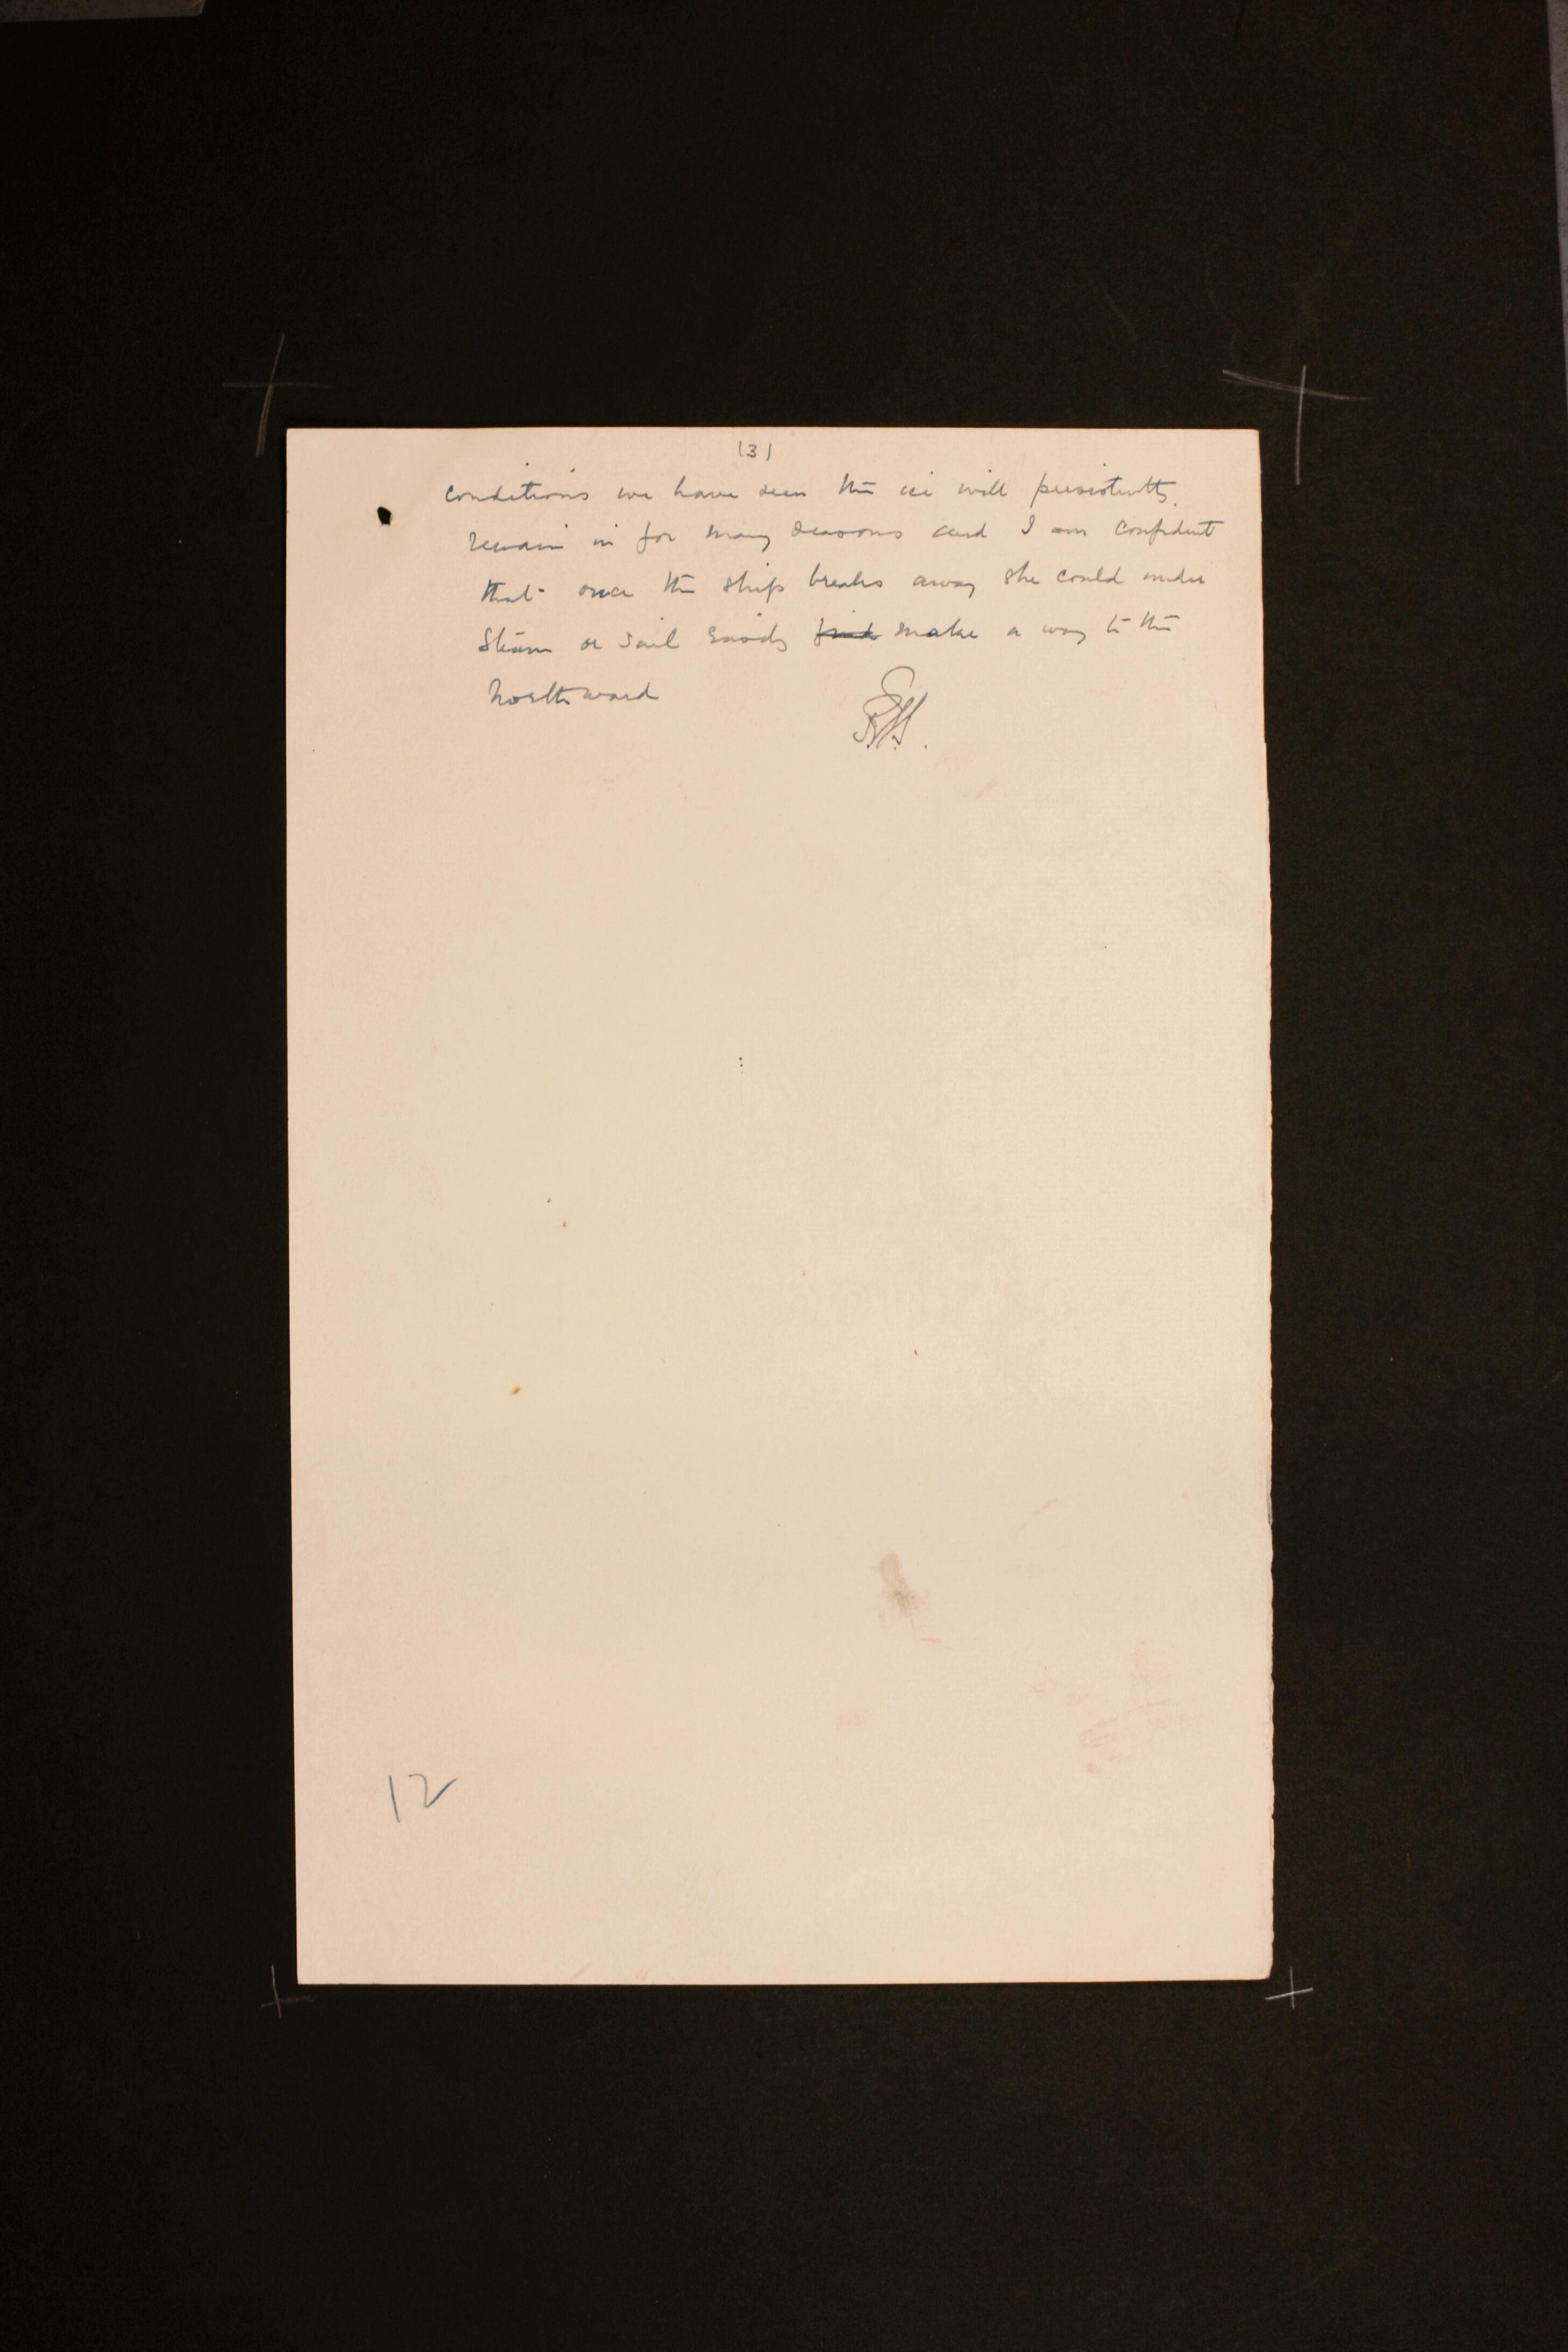 (3)
conditions we have seen the ice will persistently
remain in for many seasons and I am confident
that once the ship breaks away she could under
steam or sail easily find make a way to the
northward
12